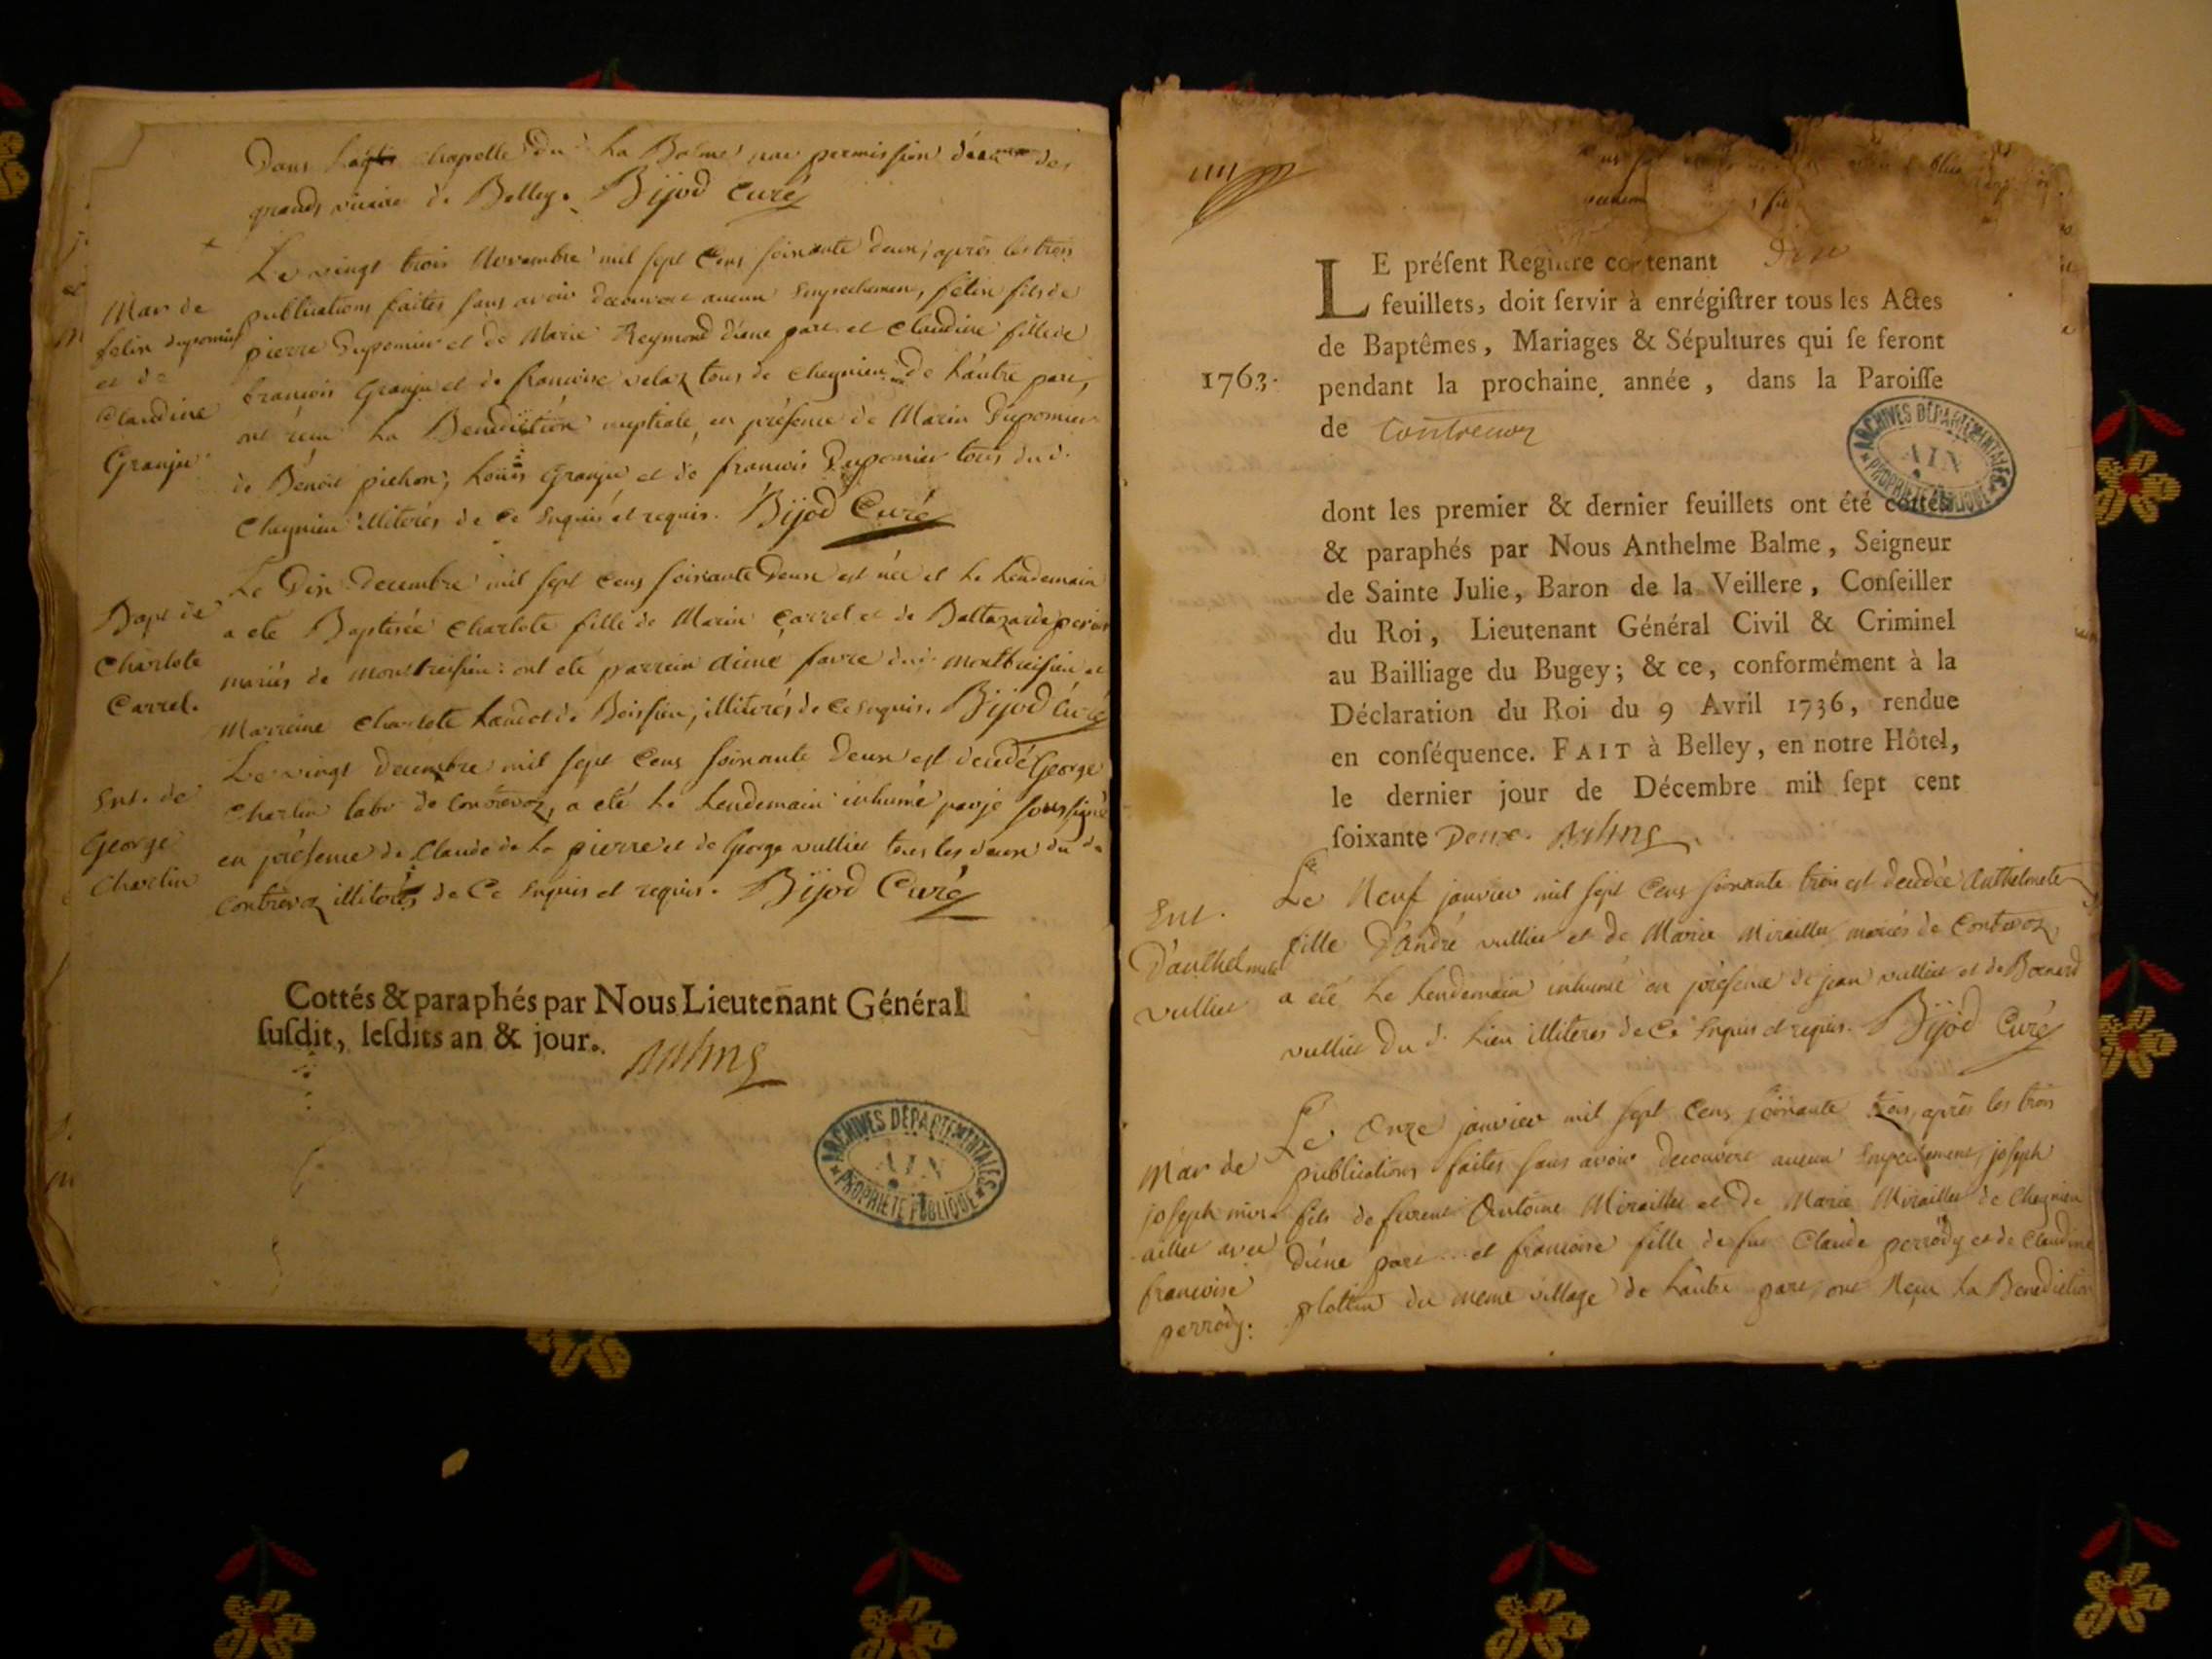 Dans chapelle du d. La Balme par permission des
grands vicaire de Belley. Bijod Curé
Le vingt trois Novembre mil sept Cens soixante deux, après les trois
publications faites sans avoir decouvert aucun Empechemen, felix fils de
pierre Dupomier et de Marie Reymond d'une part et Claudine fille de
francois Granju et de francoise velaz tous de Cheynieu de L'autre part,
ont recu La Benediction nuptiale en présence de Marin Dupomier
de Benoit pichon, Louis Granju et de francois Dupomier tous du d.
Cheynieu illiterés de Ce Enquis et requis. Bijod Curé
Mar de
felix dupomier
et de
Claudine
Granju
Le Dix decembre mil sept Cens soixante Deux est née et Le Lendemain
a eté Baptisée Charlote fille de Marin Carrel et de Baltazarde
mariés de montbreisieu : ont eté parrein aimé favre du d. montbreisieu et
Marreine Charlote de Boissieu, illiterés de Ce Enquis. Bijod Curé
Bapt de
Charlote
Carrel.
Le vingt decembre mil sept Cens soixante Deux est decedé George
Charlin labr de Contrevoz, a eté Le Lendemain inhumé par je soussigné
en présence de Claude de La pierre et de George vulliet tous les deux du d.
Contrevoz illiterés de Ce Enquis et requis. Bijod Curé
Ent. de
George
Charlin
Cottés & paraphés par Nous Lieutenant Général
susdit, lesdits an & jour.
Balme
AIN
ARCHIVES DÉPARTEMENTALES
PROPRIÉTÉ PUBLIQUE
LE préſent Regiſtre contenant Dix
feuillets, doit ſervir à enrégiſtrer tous les Actes
de Baptêmes, Mariages & Sépultures qui ſe feront
1763. pendant la prochaine année, dans la Paroiſſe
de Contrevoz
ARCHIVES DÉPARTEMENTALES
AIN
PROPRIÉTÉ PUBLIQUE
dont les premier & dernier feuillets ont été cottés
& paraphés par Nous Anthelme Balme, Seigneur
de Sainte Julie, Baron de la Veillere, Conſeiller
du Roi, Lieutenant Général Civil & Criminel
au Bailliage du Bugey; & ce, conformément à la
Déclaration du Roi du 9 Avril 1736, rendue
en conſéquence. FAIT à Belley, en notre Hôtel,
le dernier jour de Décembre mil ſept cent
ſoixante Deux. Balme
Le Neuf janvier mil sept Cens soixante trois est decedée Anthelmete
fille D'André vulliet et de Marie Miraillet mariés de Contrevoz
a eté Le Lendemain inhumé en présence de jean vulliet et de Bernard
vulliet Du d. Lieu illiteres de Ce Enquis et requis. Bijod Curé
Ent.
D'anthelmete
vulliet
Le Onze janvier mil sept Cens soixante trois, après les trois
publications faites sans avoir decouvert aucun Empechement, joseph
fils de Antoine Miraillet et de Marie Miraillet de Cheynieu
d'une part et francoise fille de feu Claude perrody et de Claudine
plottin du meme village de Lautre part, ont Reçu La Benediction
Mar de
joseph mir-
aillet avec
francoise
perrody.